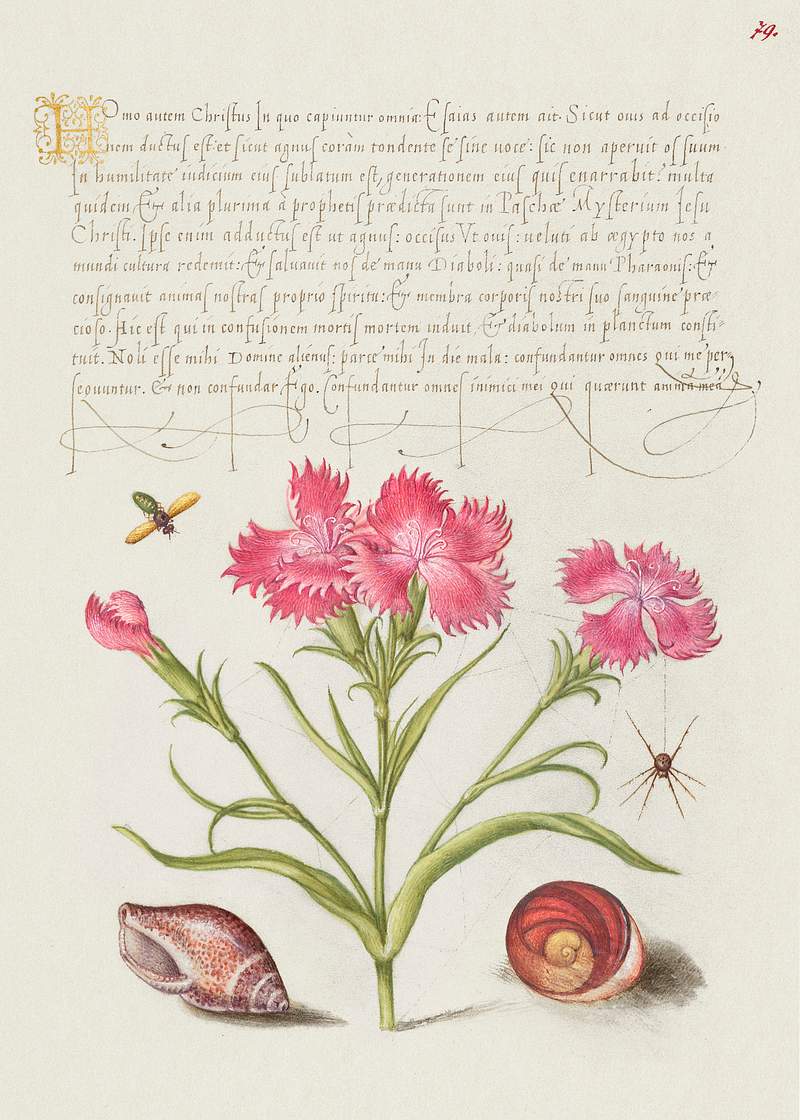 79.
Homo autem Christus In quo capiuntur omnia: Esaias autem ait. Sicut ouis ad occisio
nem ductus est: et sicut agnus coràm tondente se sine uoce: sic non aperuit os suum.
In humilitate iudicium eius sublatum est, generationem eius quis enarrabit? multa
quidem & alia plurima à prophetis prædicta sunt in Paschæ Mysterium Iesu
Christi. Ipse enim adductus est ut agnus: occisus Vt ouis: ueluti ab ægypto nos a
mundi cultura redemit: & saluauit nos de manu Diaboli: quasi de manu Pharaonis: &
consignauit animas nostras proprio spiritu: & membra corporis nostri suo sanguine præ-
cioso. Hic est qui in confusionem mortis mortem induit, & diabolum in planctum consti-
tuit. Noli esse mihi Domine alienus: parce mihi In die mala: confundantur omnes qui me per
sequuntur. & non confundar Ego. Confundantur omnes inimici mei qui quærunt anima meã